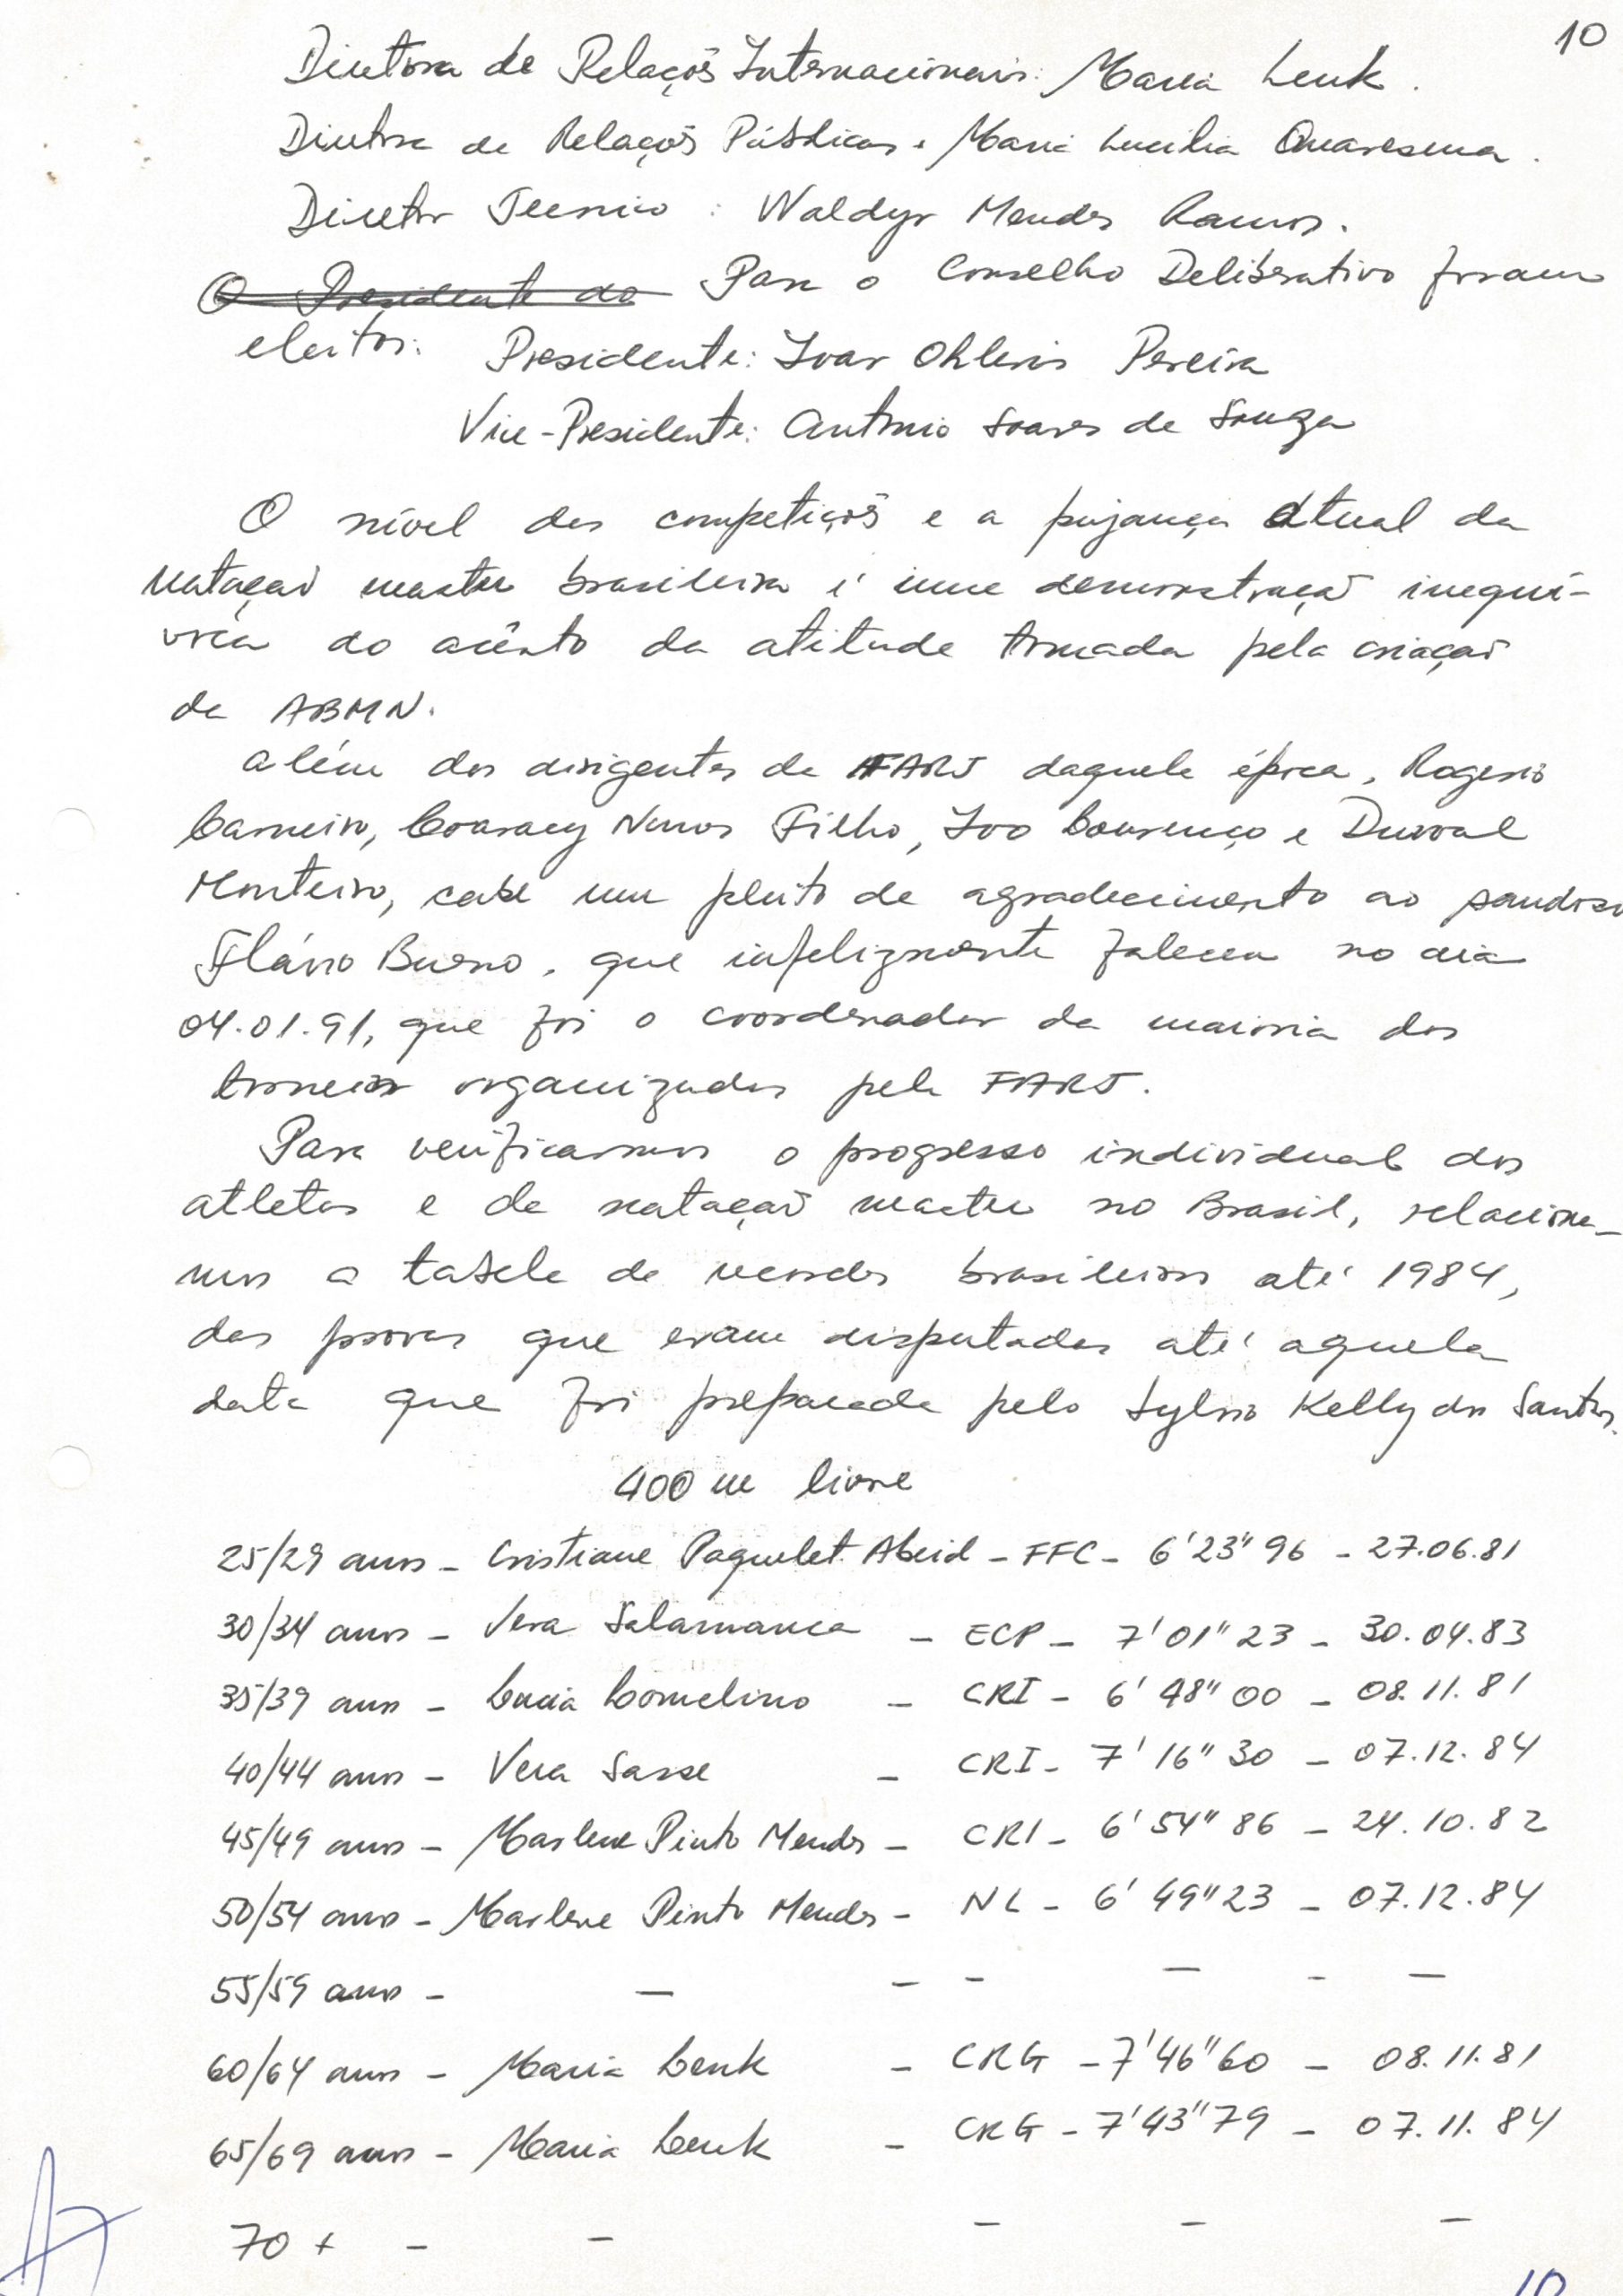 10
Diretora de Relações Internacionais: Maria Lenk.
Diretora de Relações Públicas: Maria Lucilia Quaresma.
Diretor Tecnico: Waldyr Mendes Ramos.
O Presidente do Para o Conselho Deliberativo foram
eleitos: Presidente: Ivar Ohleris Pereira
Vice-Presidente: Antonio Soares de Souza
O nível das competições e a pujança atual da
natação master brasileira é uma demonstração inequí-
voca do acêrto da atitude tomada pela criação
da ABMN.
Além dos dirigentes da FARJ daquela época, Rogerio
Carneiro, Coaracy Nunes Filho, Ivo Lourenço e Durval
Monteiro, cabe um pleito de agradecimento ao saudoso
Flávio Bueno, que infelizmente faleceu no dia
04.01.91, que foi o coordenador da maioria dos
torneios organizados pela FARJ.
Para verificarmos o progresso individual dos
atletas e da natação master no Brasil, relaciona-
mos a tabela de recordes brasileiros até 1984,
das provas que eram disputadas até aquela
data que foi preparada pelo Sylvio Kelly dos Santos.
400 m livre
25/29 anos - Cristiane Paquelet Abeid - FFC - 6'23"96 - 27.06.81
30/34 anos - Vera Salamanca - ECP - 7'01"23 - 30.04.83
35/39 anos - Lucia Comelino - CRI - 6'48"00 - 08.11.81
40/44 anos - Vera Sasse - CRI - 7'16"30 - 07.12.84
45/49 anos - Marlene Pinto Mendes - CRI - 6'54"86 - 24.10.82
50/54 anos - Marlene Pinto Mendes - NL - 6'49"23 - 07.12.84
55/59 anos - - - - - - -
60/64 anos - Maria Lenk - CRG - 7'46"60 - 08.11.81
65/69 anos - Maria Lenk - CRG - 7'43"79 - 07.11.84
70 + - - - - -
10